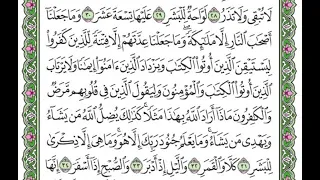 لَا تُبْقِي وَلَا تَذَرُ ﴿٢٨﴾ لَوَّاحَةٌ لِّلْبَشَرِ ﴿٢٩﴾ عَلَيْهَا تِسْعَةَ عَشَرَ ﴿٣٠﴾ وَمَا جَعَلْنَا
أَصْحَٰبَ النَّارِ إِلَّا مَلَٰٓئِكَةً وَمَا جَعَلْنَا عِدَّتَهُمْ إِلَّا فِتْنَةً لِّلَّذِينَ كَفَرُوا
لِيَسْتَيْقِنَ الَّذِينَ أُوتُوا الْكِتَٰبَ وَيَزْدَادَ الَّذِينَ ءَامَنُوٓا إِيمَٰنًا وَلَا يَرْتَابَ
الَّذِينَ أُوتُوا الْكِتَٰبَ وَالْمُؤْمِنُونَ وَلِيَقُولَ الَّذِينَ فِي قُلُوبِهِم مَّرَضٌ
وَالْكَٰفِرُونَ مَاذَآ أَرَادَ اللَّهُ بِهَٰذَا مَثَلًا كَذَٰلِكَ يُضِلُّ اللَّهُ مَن يَشَآءُ
وَيَهْدِي مَن يَشَآءُ وَمَا يَعْلَمُ جُنُودَ رَبِّكَ إِلَّا هُوَ وَمَا هِيَ إِلَّا ذِكْرَىٰ
لِلْبَشَرِ ﴿٣١﴾ كَلَّا وَالْقَمَرِ ﴿٣٢﴾ وَالَّيْلِ إِذْ أَدْبَرَ ﴿٣٣﴾ وَالصُّبْحِ إِذَآ أَسْفَرَ ﴿٣٤﴾ إِنَّهَا